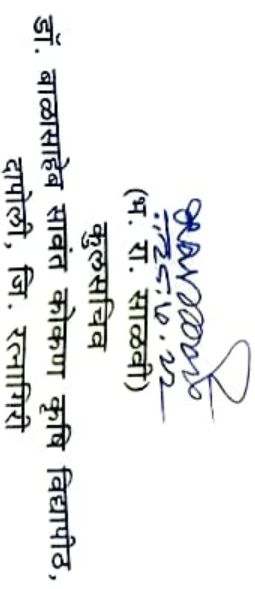 (भ. रा. साळवी)
कुलसचिव
डॉ. बाळासाहेब सावंत कोकण कृषि विद्यापीठ,
दापोली, जि. रत्नागिरी